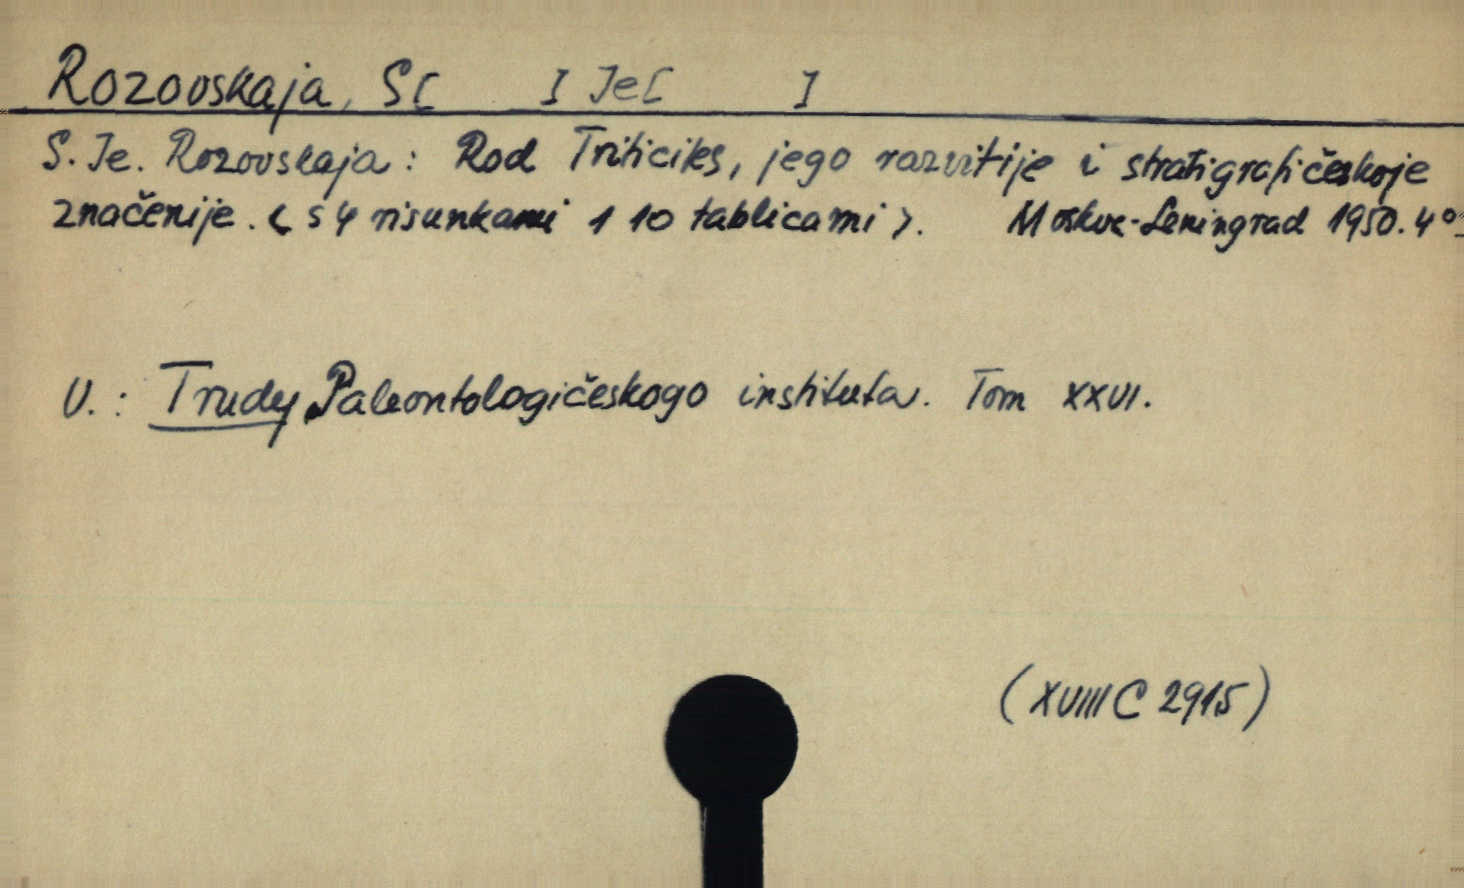 Rozovskaja, S[ ] Je[ ]
S. Je. Rozovskaja: Rod Triticiks, jego razvitije i stratigrafičeskoje
značenije. < s 4 risunkami 1 10 tablicami >. Moskva-Leningrad 1950. 4°
V.: Trudy Paleontologičeskogo instituta. Tom XXVI.
(XVIII C 2915)